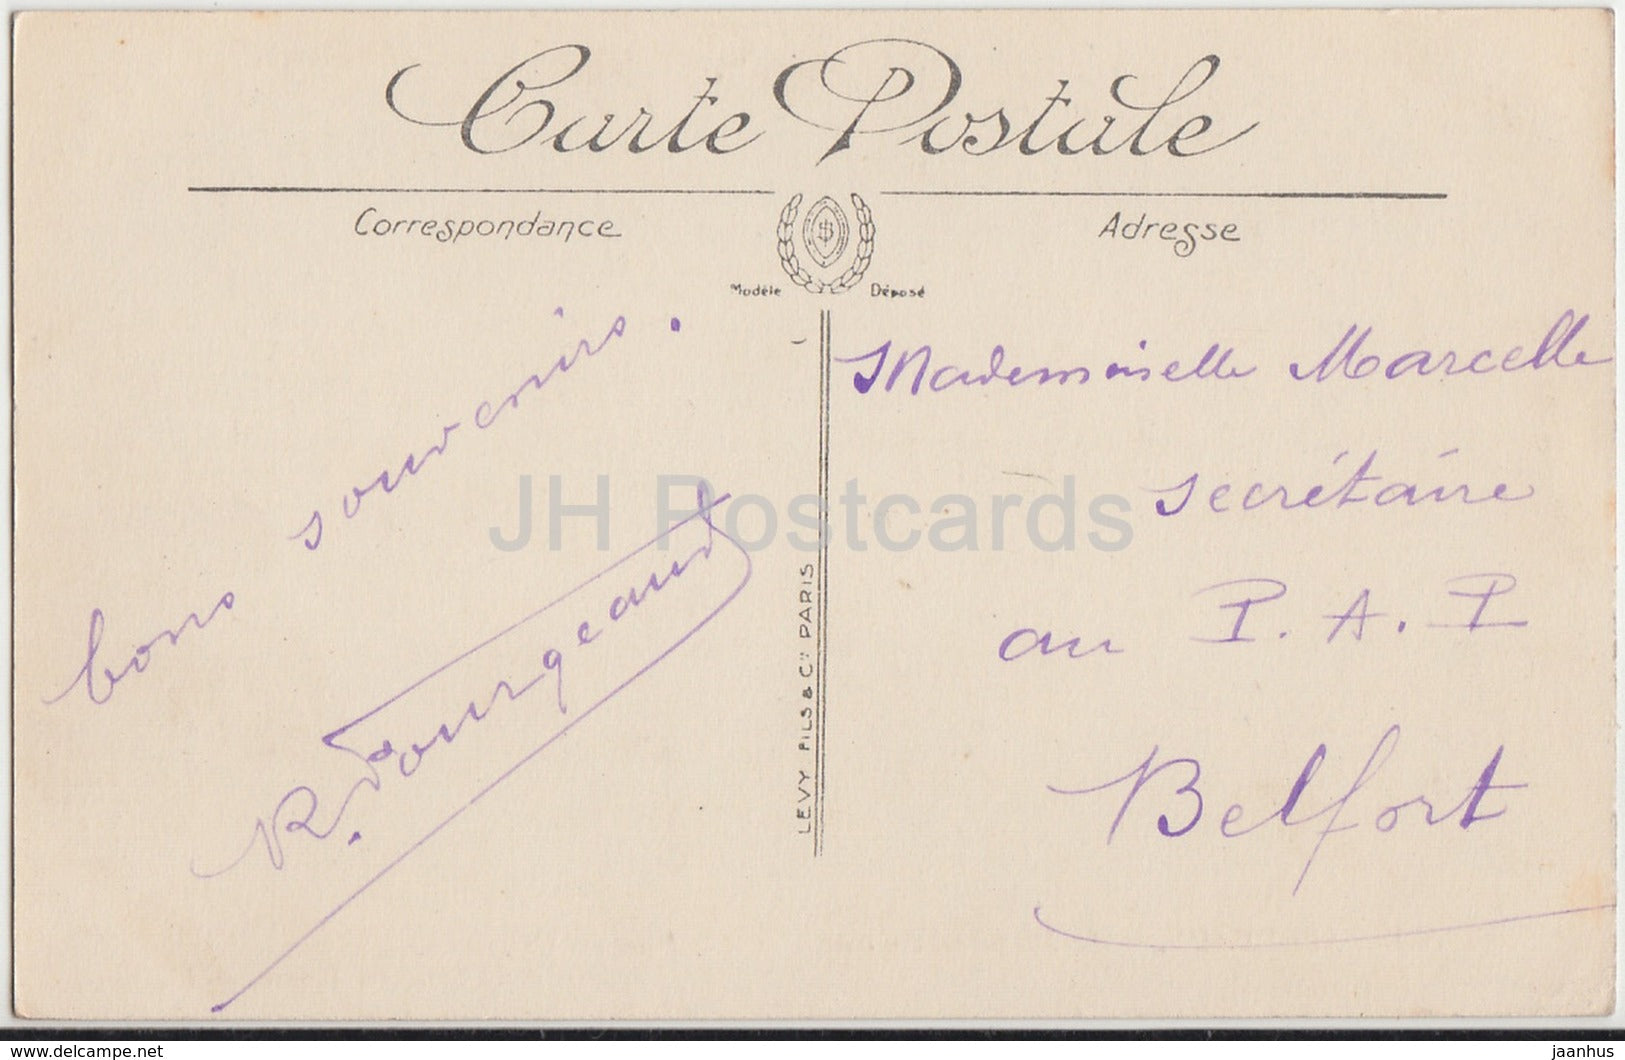 Carte Postale
Correspondance
Adresse
Modèle Déposé
bons souvenirs.
R. Bourgeaud
LEVY FILS & Cie PARIS
Mademoiselle Marcelle
secrétaire
au P. A. P
Belfort
JH Postcards
delcampe.net
jaanhus